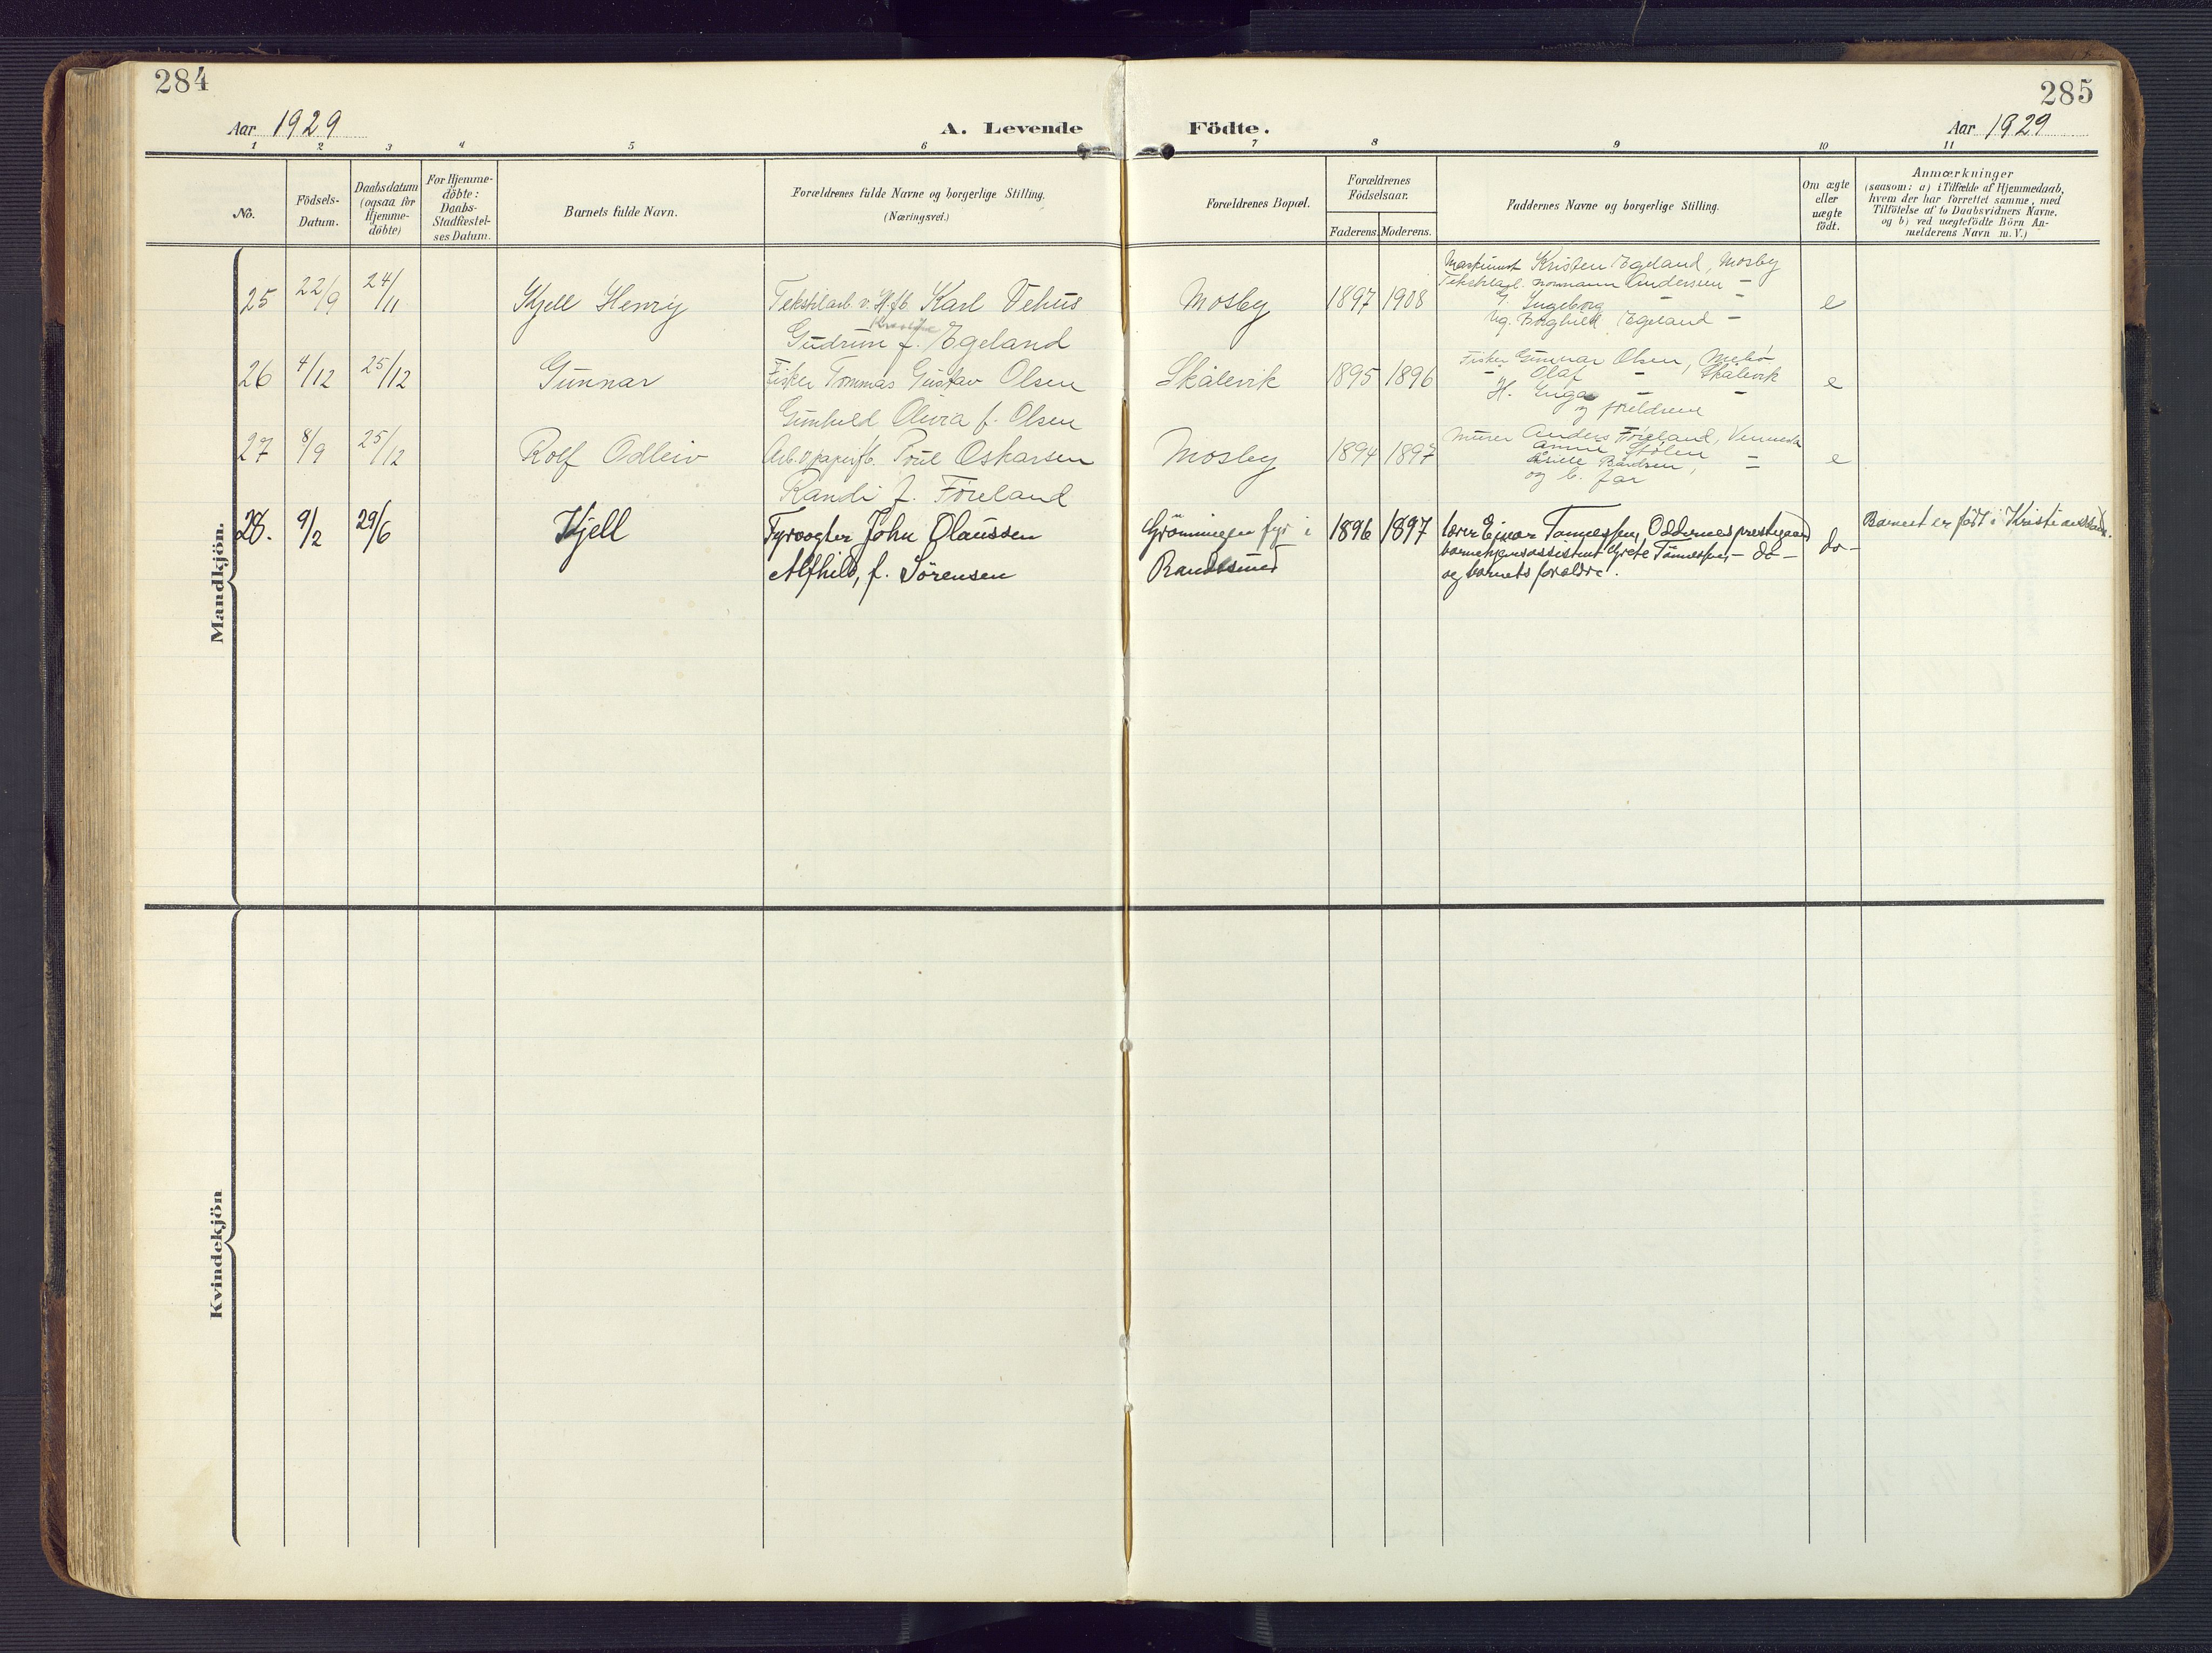 284
285
Aar 1929
A. Levende Födte.
Aar 1929
1 2 3 4 5 6 7 8 9 10 11
No.
Födsels-
Datum.
Daabsdatum
(ogsaa for
Hjemme-
döbte)
For Hjemme-
döbte:
Daabs-
Stadfæstel-
ses Datum.
Barnets fulde Navn.
Forældrenes fulde Navne og borgerlige Stilling.
(Næringsvei.)
Forældrenes Bopæl.
Forældrenes
Födselsaar.
Faderens. Moderens.
Faddernes Navne og borgerlige Stilling.
Om ægte
eller
uægte
födt.
Anmærkninger
(saasom: a) i Tilfælde af Hjemmedaab,
hvem der har forrettet samme, med
Tilföielse af to Daabsvidners Navne,
og b) ved uægtefödte Börn An-
melderens Navn m. V.)
Mandkjön.
25 22/9 24/11 Kjell Henry
Tekstilarb. v. H.fb. Karl Vehus
Gudrun f. Egeland
Mosby 1897 1908
Maskinist Kristen Egeland, Mosby
Tekstilarb. Normann Andersen –
G. Ingeborg – –
Ug. Borghild Egeland –
e
26 4/12 25/12 Gunnar
Fisker Tommas Gustav Olsen
Gunhild Olivia f. Olsen
Skålevik 1895 1896
Fisker Gunnar Olsen, Mebø
– Olaf – Skålevik
H. Inga – –
og foreldrene
e
27 8/9 25/12 Rolf Odleiv
Arb. v. papirfb. Poul Oskarsen
Randi f. Føreland
Mosby 1894 1897
Murer Anders Føreland, Vennesla
Anne Stølen
Bårdsen, –
og b. far
e
28. 9/2 29/6 Kjell
Fyrvogter John Olaussen
Alfhild, f. Sörensen
Grönningen fyr i
Randesund
1896 1897
lærer Einar Tønnessen, Oddernes prestegaard
barnehjemsassistent Grete Tönnessen, – do –
og barnets forældre.
do –
Barnet er født i Kristiansand.
Kvindekjön